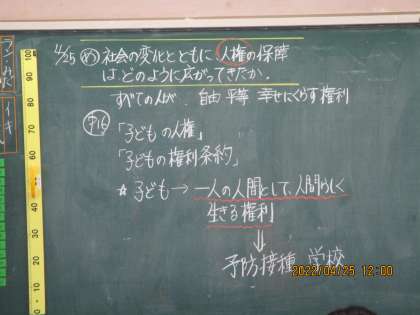 4/25 め 社会の変化とともに、人権の保障
はどのように広がってきたか。
すべての人が、自由 平等 幸せにくらす権利
P16
「子どもの人権」
「子どもの権利条約」
☆子ども→一人の人間として、人間らしく
生きる権利
⇓
予防接種 学校
2022/04/25 12:00
100
90
80
70
60
50
40
30